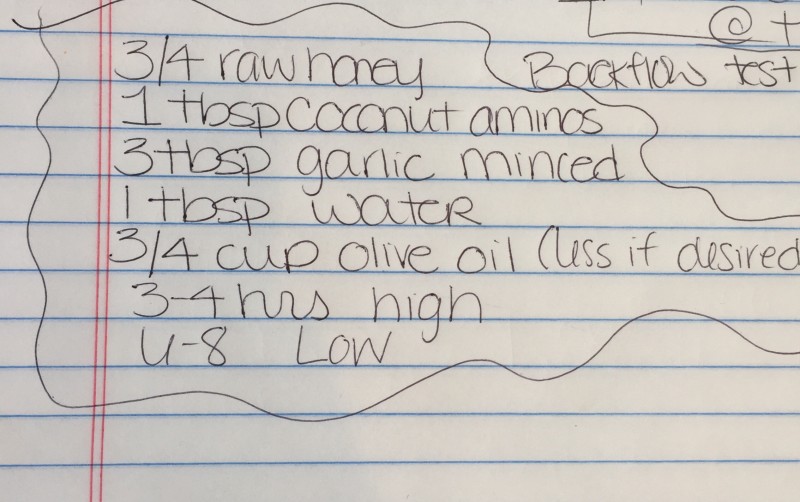 @ t
3/4 raw honey
Backflow test
1 tbsp coconut aminos
3 tbsp garlic minced
1 tbsp water
3/4 cup olive oil (less if desired
3-4 hrs high
4-8 Low